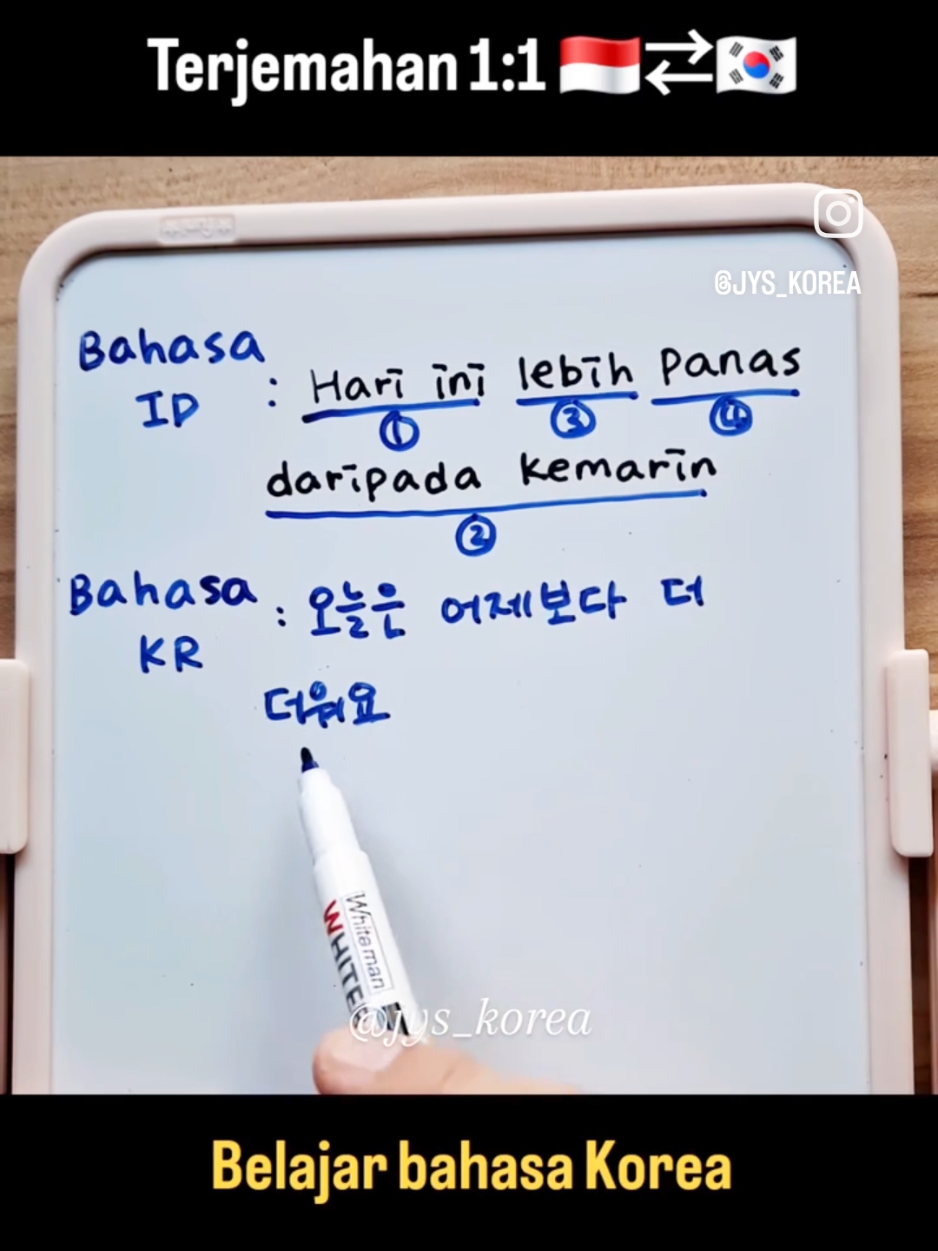 Terjemahan 1:1 🇮🇩⇄🇰🇷
@JYS_KOREA
Bahasa ID : Hari ini lebih panas
① ③ ④
daripada kemarin
②
Bahasa KR : 오늘은 어제보다 더
더워요
Whiteman
WHITE
@jys_korea
Belajar bahasa Korea